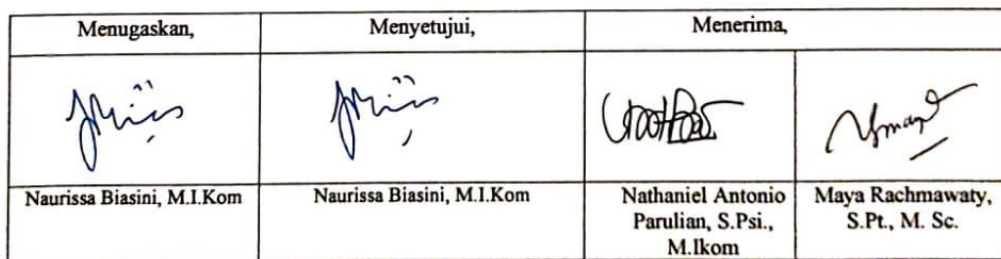 Menugaskan,
Menyetujui,
Menerima,
Naurissa Biasini, M.I.Kom
Naurissa Biasini, M.I.Kom
Nathaniel Antonio
Parulian, S.Psi.,
M.Ikom
Maya Rachmawaty,
S.Pt., M. Sc.